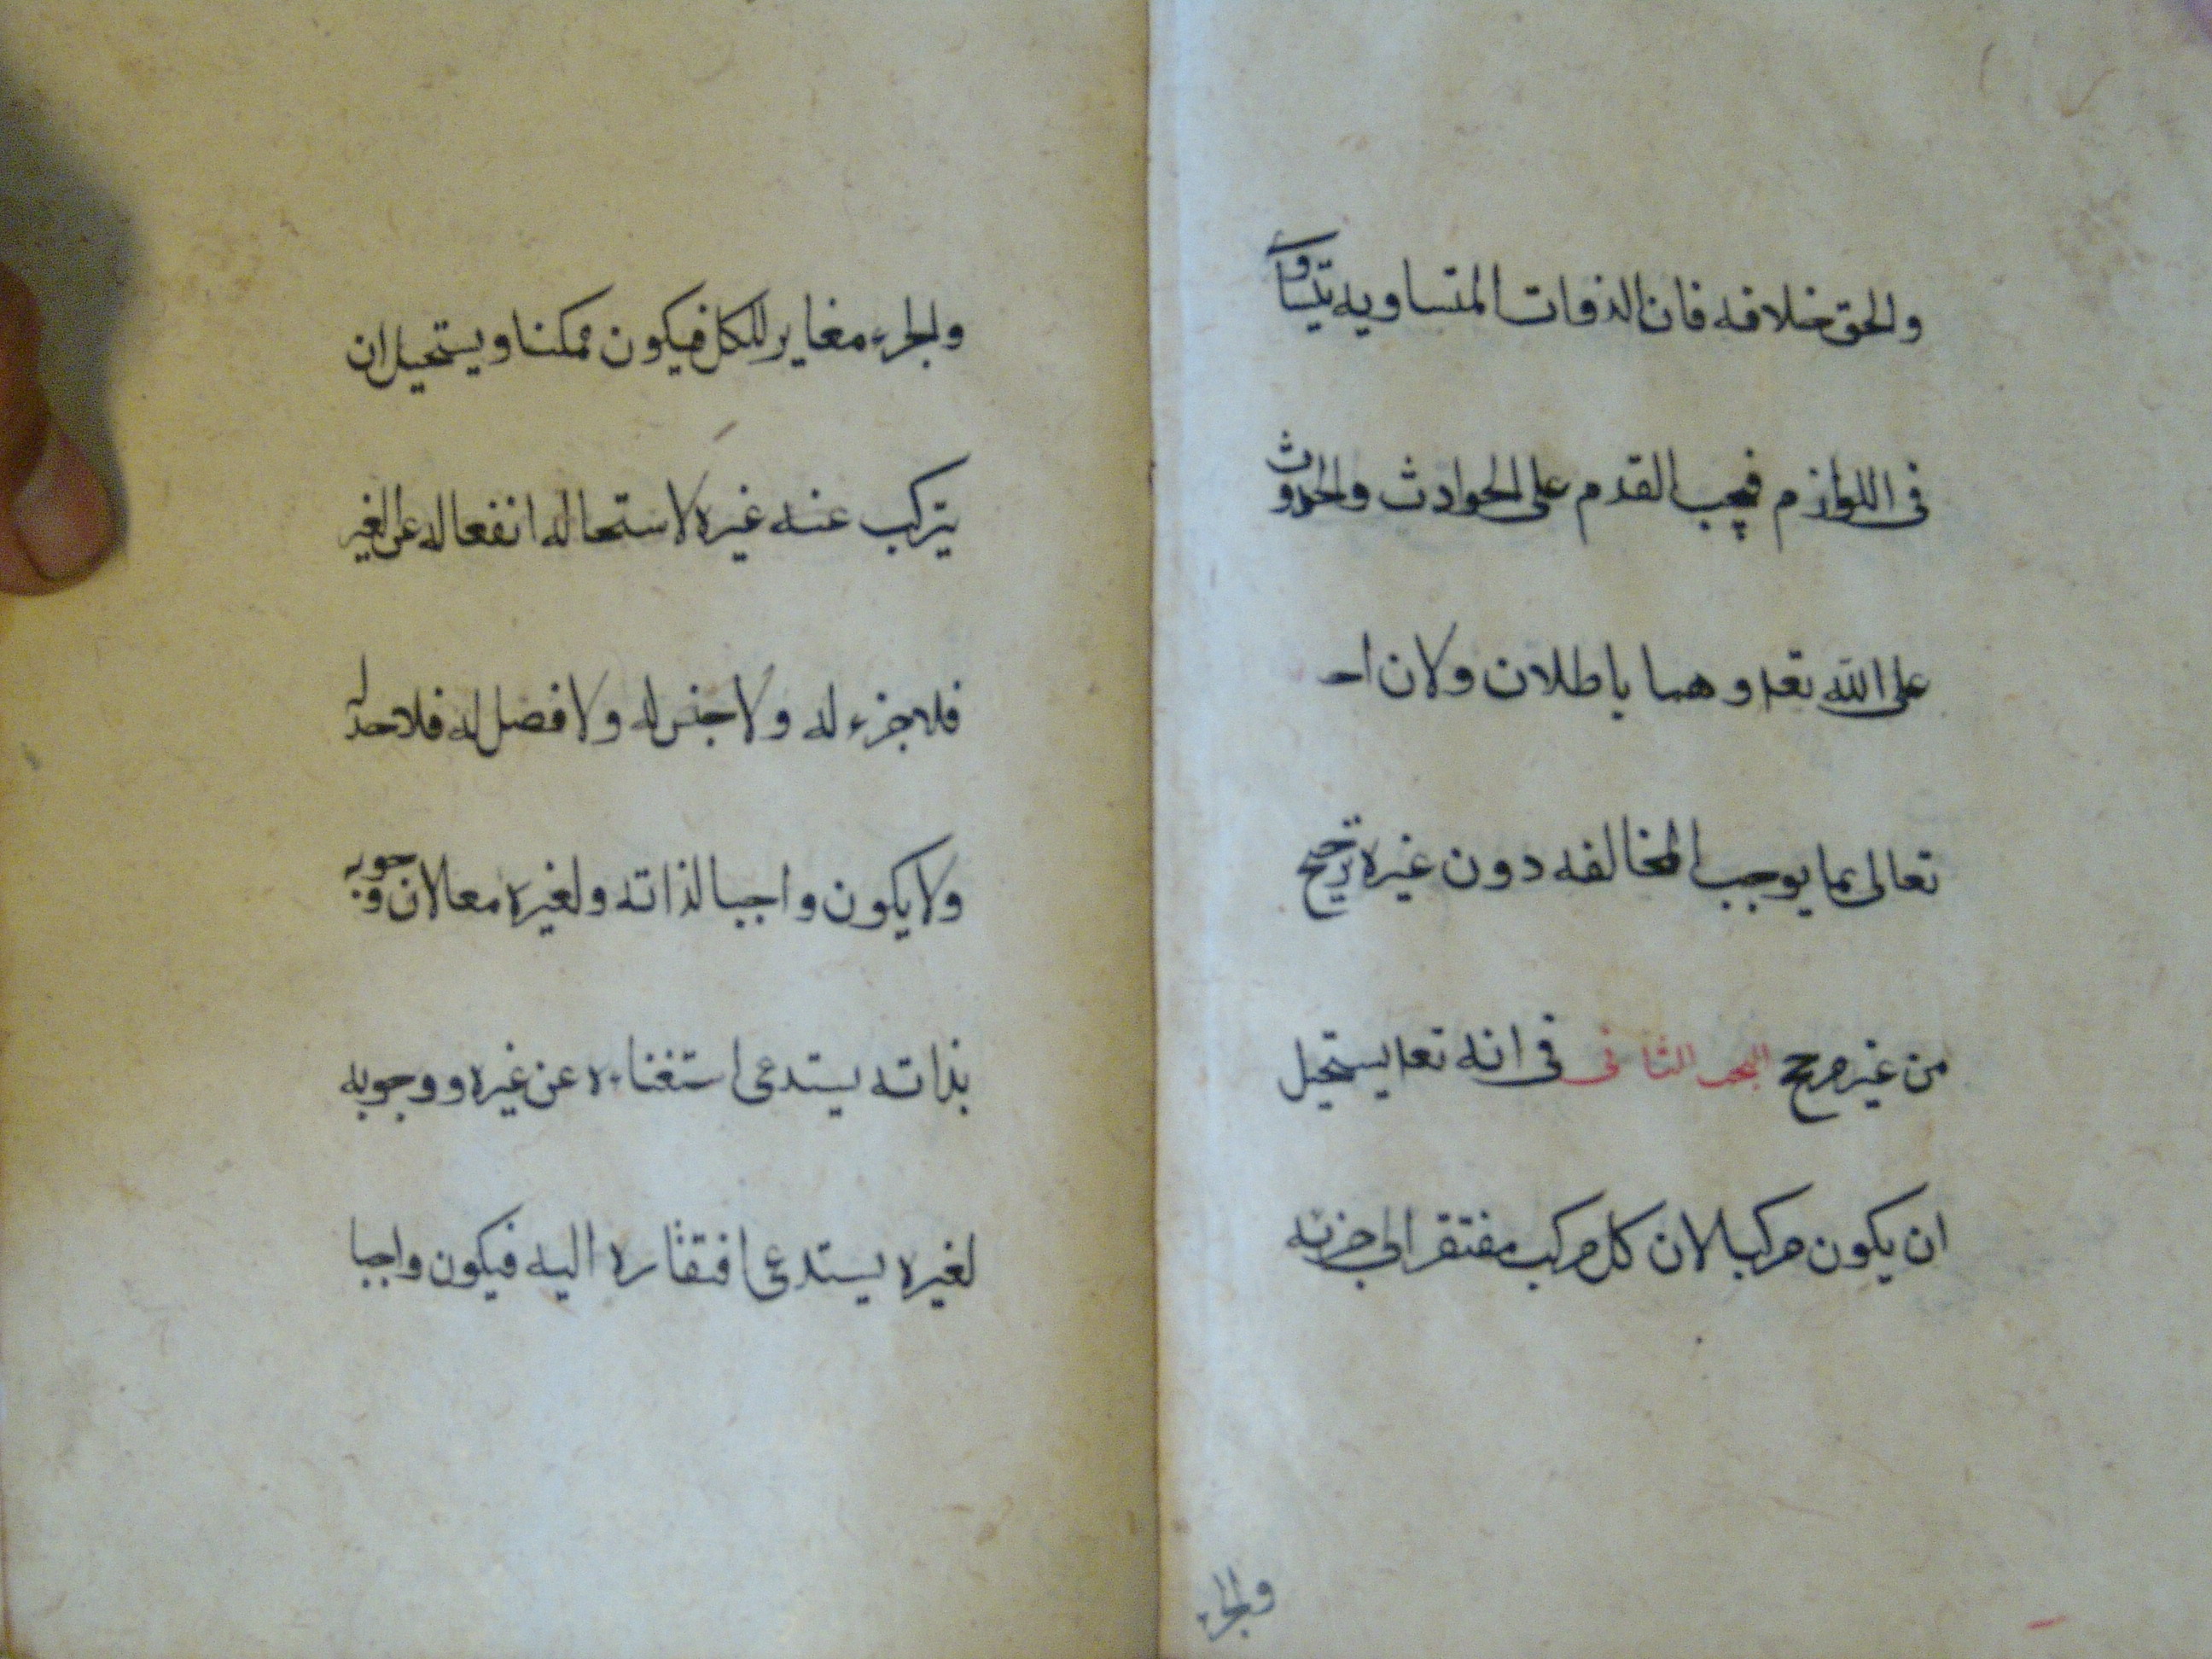 والحق خلافه فان الذوات المتساويه تتساوى
فى اللوازم فيجب القدم على الحوادث والحدوث
على الله تعا وهما باطلان ولان ا
تعالى بما يوجب المخالفه دون غيره ترجيح
من غير مرجح البحث الثانى فى انه تعا يستحيل
ان يكون مركبا لان كل مركب مفتقر الى جزئه
والجزء
والجزء مغاير للكل فيكون ممكنا ويستحيل ان
يتركب عنه غيره لاستحاله انفعاله عن الغير
فلا جزء له ولا جنس له ولا فصل له فلا حد له
ولا يكون واجبا لذاته ولغيره معا لان وجوبه
بذاته يستدعى استغناءه عن غيره ووجوبه
لغيره يستدعى افتقاره اليه فيكون واجبا